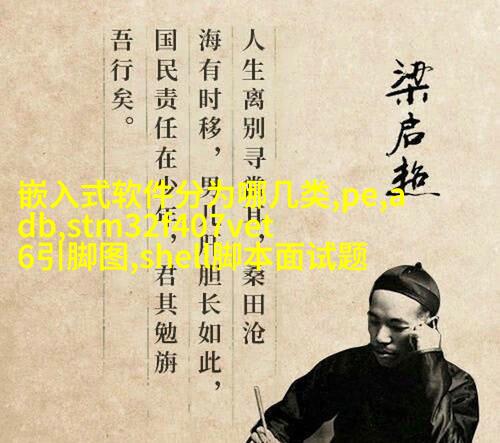 梁启超
人生离别寻常耳，桑田沧
海有时移，男儿肝胆长如此，
国民责任在少年，君其勉旃
吾行矣。
嵌入式软件分为哪几类,pe,a
db,stm32f407vet
6引脚图,shell脚本面试题